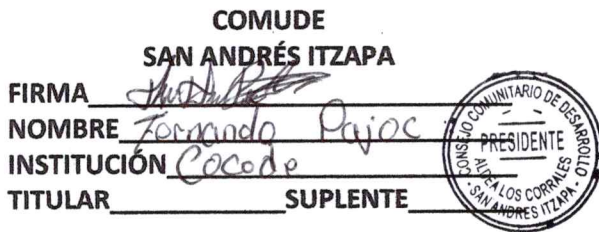 COMUDE
SAN ANDRÉS ITZAPA
FIRMA
NOMBRE Fernando Pajoc
INSTITUCIÓN Cocode
TITULAR SUPLENTE
CONSEJO COMUNITARIO DE DESARROLLO
PRESIDENTE
ALDEA LOS CORRALES
SAN ANDRES ITZAPA